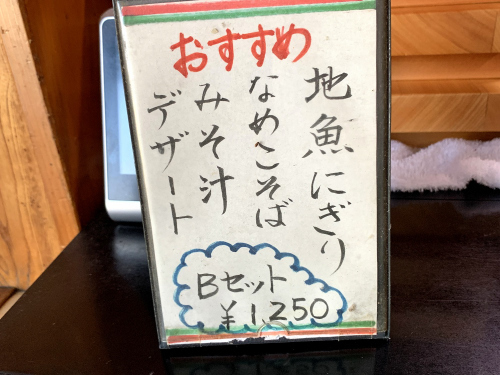 おすすめ
地魚にぎり
なめこそば
みそ汁
デザート
Bセット
¥1,250